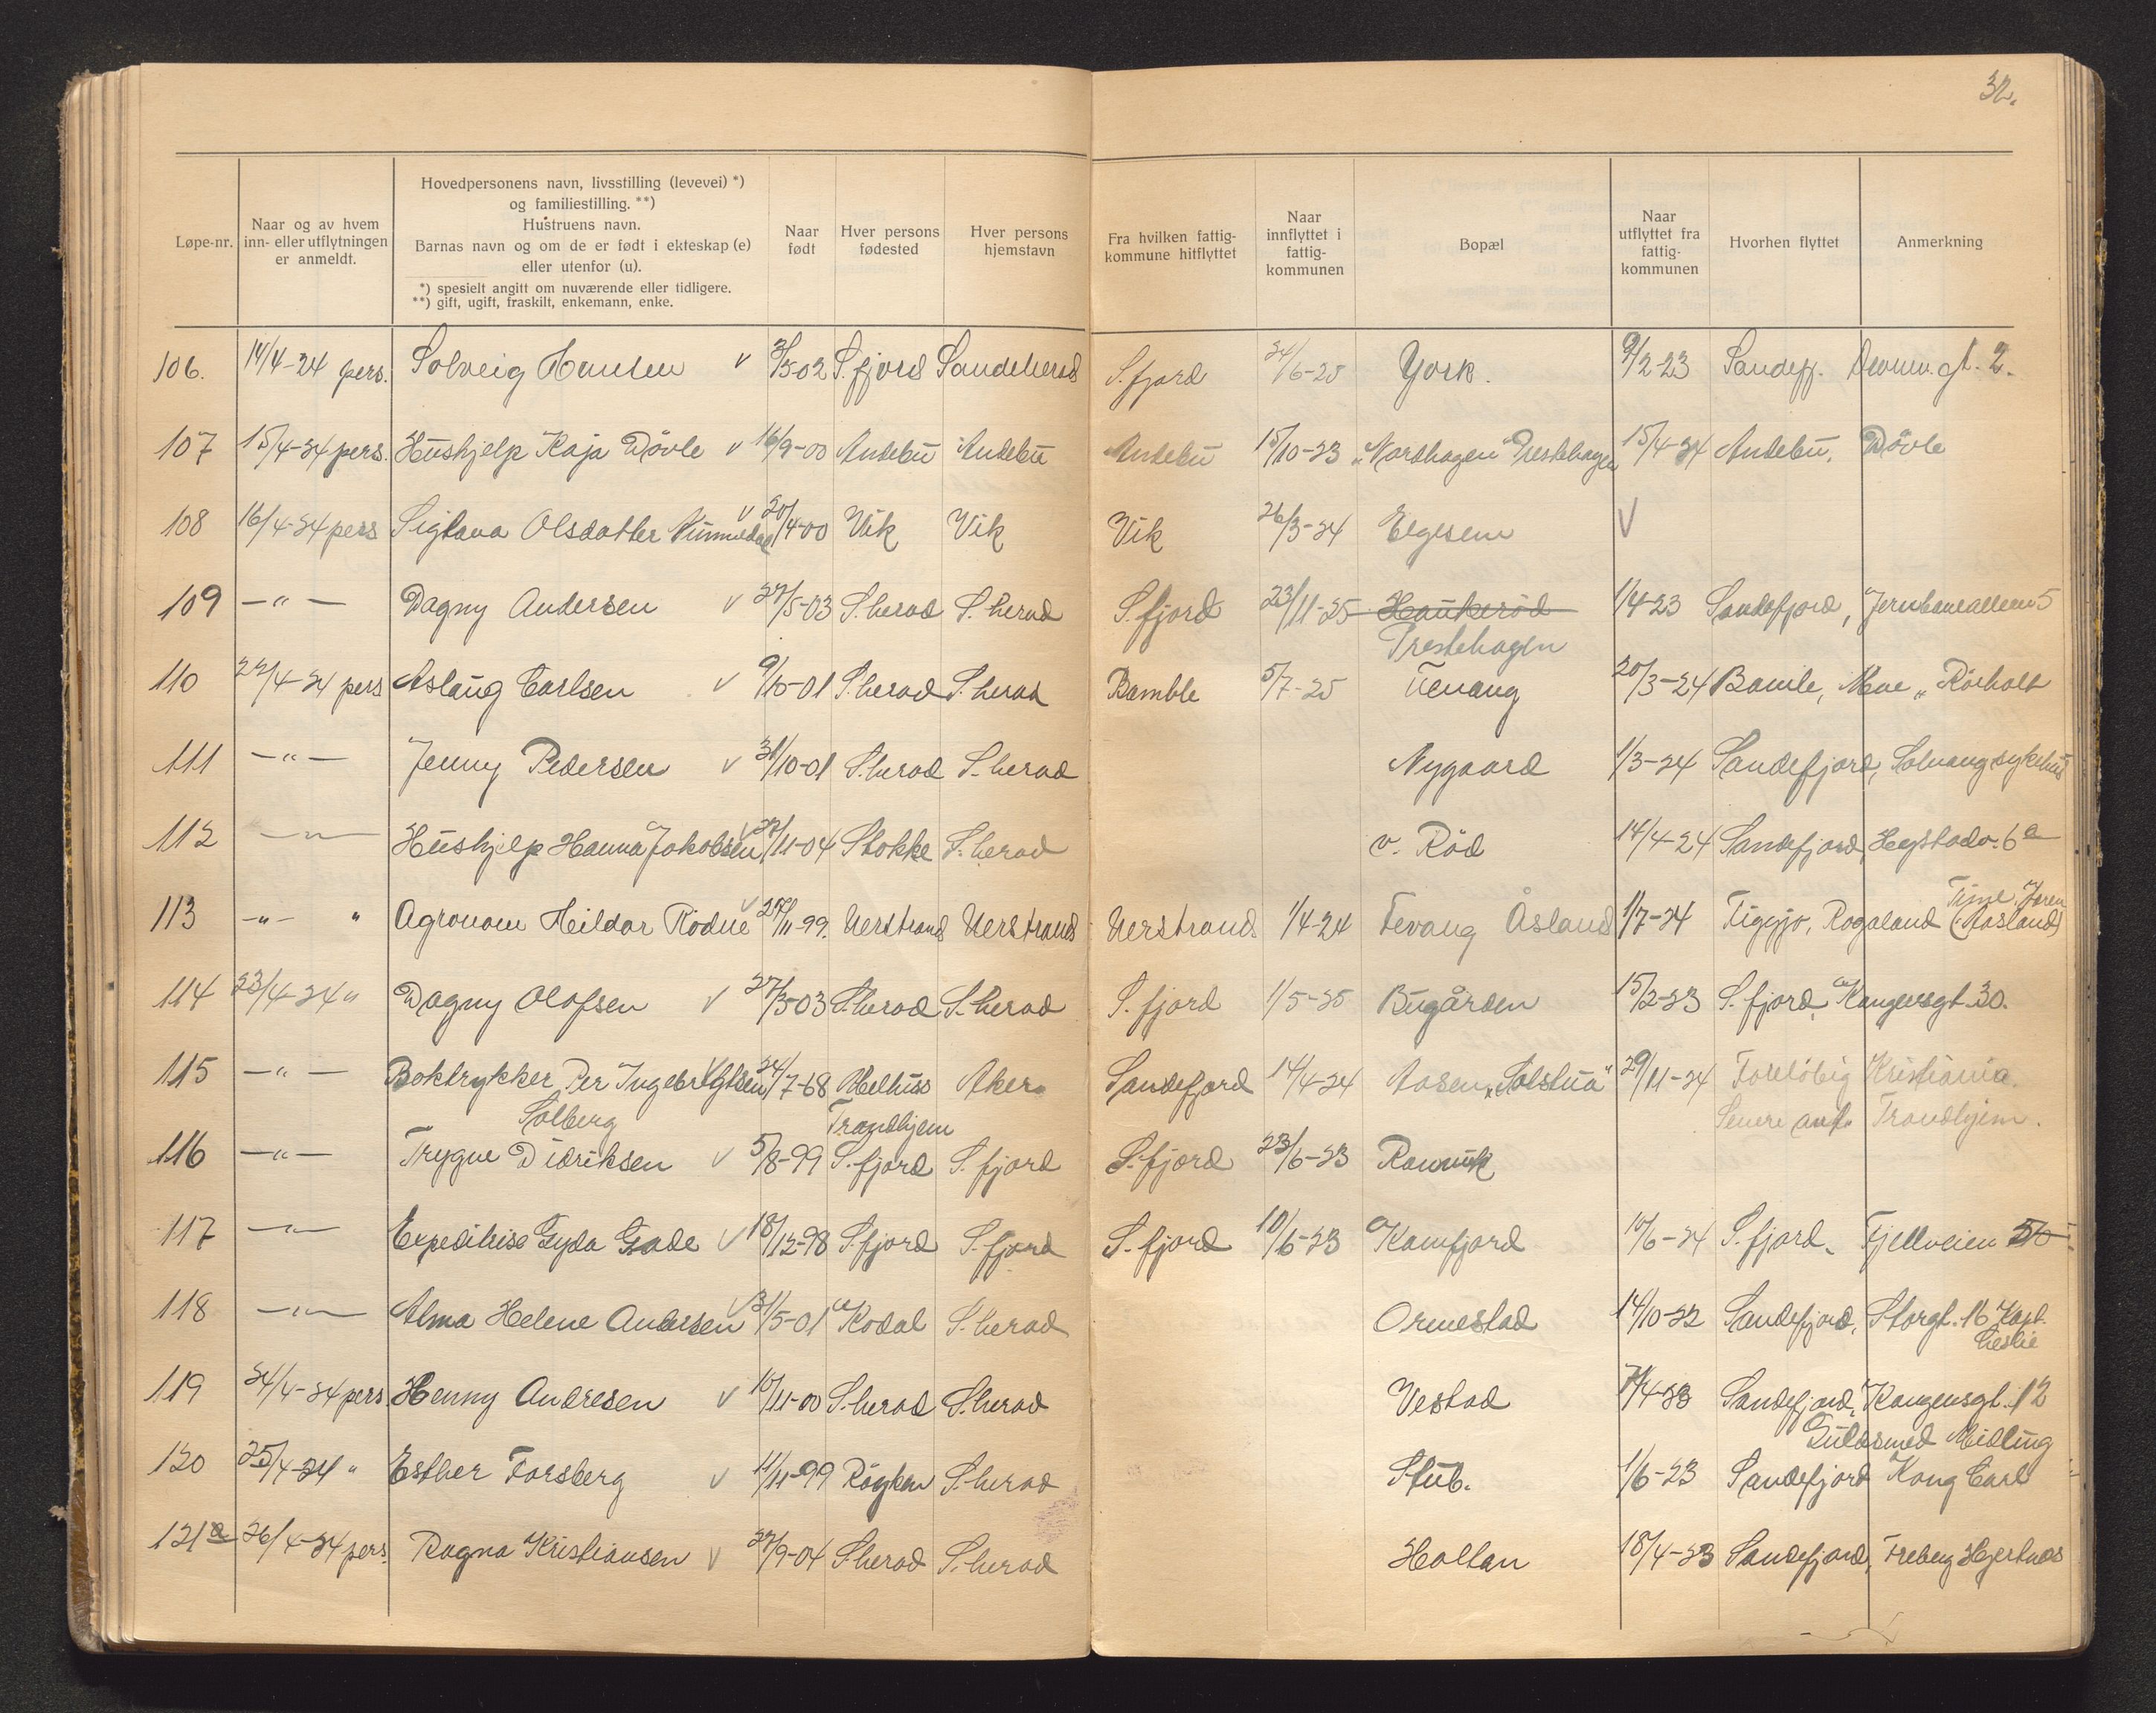 32.
Løpe-nr.
Naar og av hvem
inn- eller utflytningen
er anmeldt.
Hovedpersonens navn, livsstilling (levevei) *)
og familiestilling. **)
Hustruens navn.
Barnas navn og om de er født i ekteskap (e)
eller utenfor (u).
*) spesielt angitt om nuværende eller tidligere.
**) gift, ugift, fraskilt, enkemann, enke.
Naar
født
Hver persons
fødested
Hver persons
hjemstavn
Fra hvilken fattig-
kommune hitflyttet
Naar
innflyttet i
fattig-
kommunen
Bopæl
Naar
utflyttet fra
fattig-
kommunen
Hvorhen flyttet
Anmerkning
106. 14/4-24 pers. Solveig Hansen v 3/5-02 S.fjord Sandeherad S.fjord 24/6-25 York. 9/2-23 Sandefj. Dronn.gt. 2.
107 15/4-24 pers. Hushjelp Kaja Døvle v 16/9-00 Andebu Andebu Andebu 15/10-23 "Nordhagen" Prestehagen 15/4-24 Andebu, Døvle
108 16/4-24 pers Sigtava Olsdatter v 20/4-00 Vik Vik Vik 26/3-24 Elgesem V
109 -"- Dagny Andersen v 27/5-03 S.herad S.herad S.fjord 23/11-25 Haukerød 1/4-23 Sandefjord, Jernbanealleen 5
Prestehagen
110 22/4-24 pers Aslaug Carlsen v 9/10-01 S.herad S.herad Bamble 5/7-25 20/3-24 Bamle, "Rørholt
111 -"- Jenny Pedersen v 31/10-01 S.herad S.herad Nygaard 1/3-24 Sandefjord, Solvang sykehus
112 -"- Hushjelp Hanna Jakobsen v 27/11-04 Stokke S.herad v. Rød 14/4-24 Sandefjord, Hystadv. 6a
113 -"- " Agronom Heildor Rødne v 27/11-99. Nerstrand Nerstrand Nerstrand 1/4-24 Fevang Åsland 1/7-24 Figgjo, Rogaland (Aasland)
Time, Jæren
114 23/4-24 " Dagny Olafsen v 27/3-03 S.herad S.herad S.fjord 1/5-25 Bugården 15/2-23 S.fjord, Kongensgt. 30.
115 -"- Boktrykker Per Ingebrigtsen v 24/7-68 Melhuss Aker. Sandefjord 14/4-24 Aasen "Solstua" 29/11-24 Foreløbig Kristiania.
Solberg Trondhjem Senere ant. Trondhjem.
116 -"- Trygve Didriksen v 5/8-99 S.fjord S.fjord S.fjord 23/6-23 Ranvik
117 -"- Expeditrise Gyda Gade v 18/12-98 S.fjord S.fjord S.fjord 10/6-23 Kamfjord 10/6-24 S.fjord. Fjellveien
118 -"- Alma Helene Andersen v 31/5-01 Kodal S.herad Ormestad 14/10-22 Sandefjord, Storgt. 16 Kapt.
Leslie
119 24/4-24 pers Henny Andresen v 10/11-00 S.herad S.herad Vestad Sandefjord, Kongensgt. 12
Guldsmed Midling
120 25/4-24 " Esther Forsberg v 11/11-99 Røyken S.herad Stub. 1/6-23 Sandefjord Kong Carl
121a 26/4-24 pers. Ragna Kristiansen v 27/9-04 S.herad S.herad Holtan 18/4-23 Sandefjord, Freberg Hjertnæs